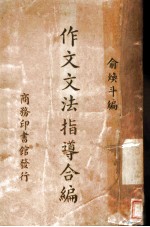 俞焕斗編
作文文法指導合編
商務印書館發行